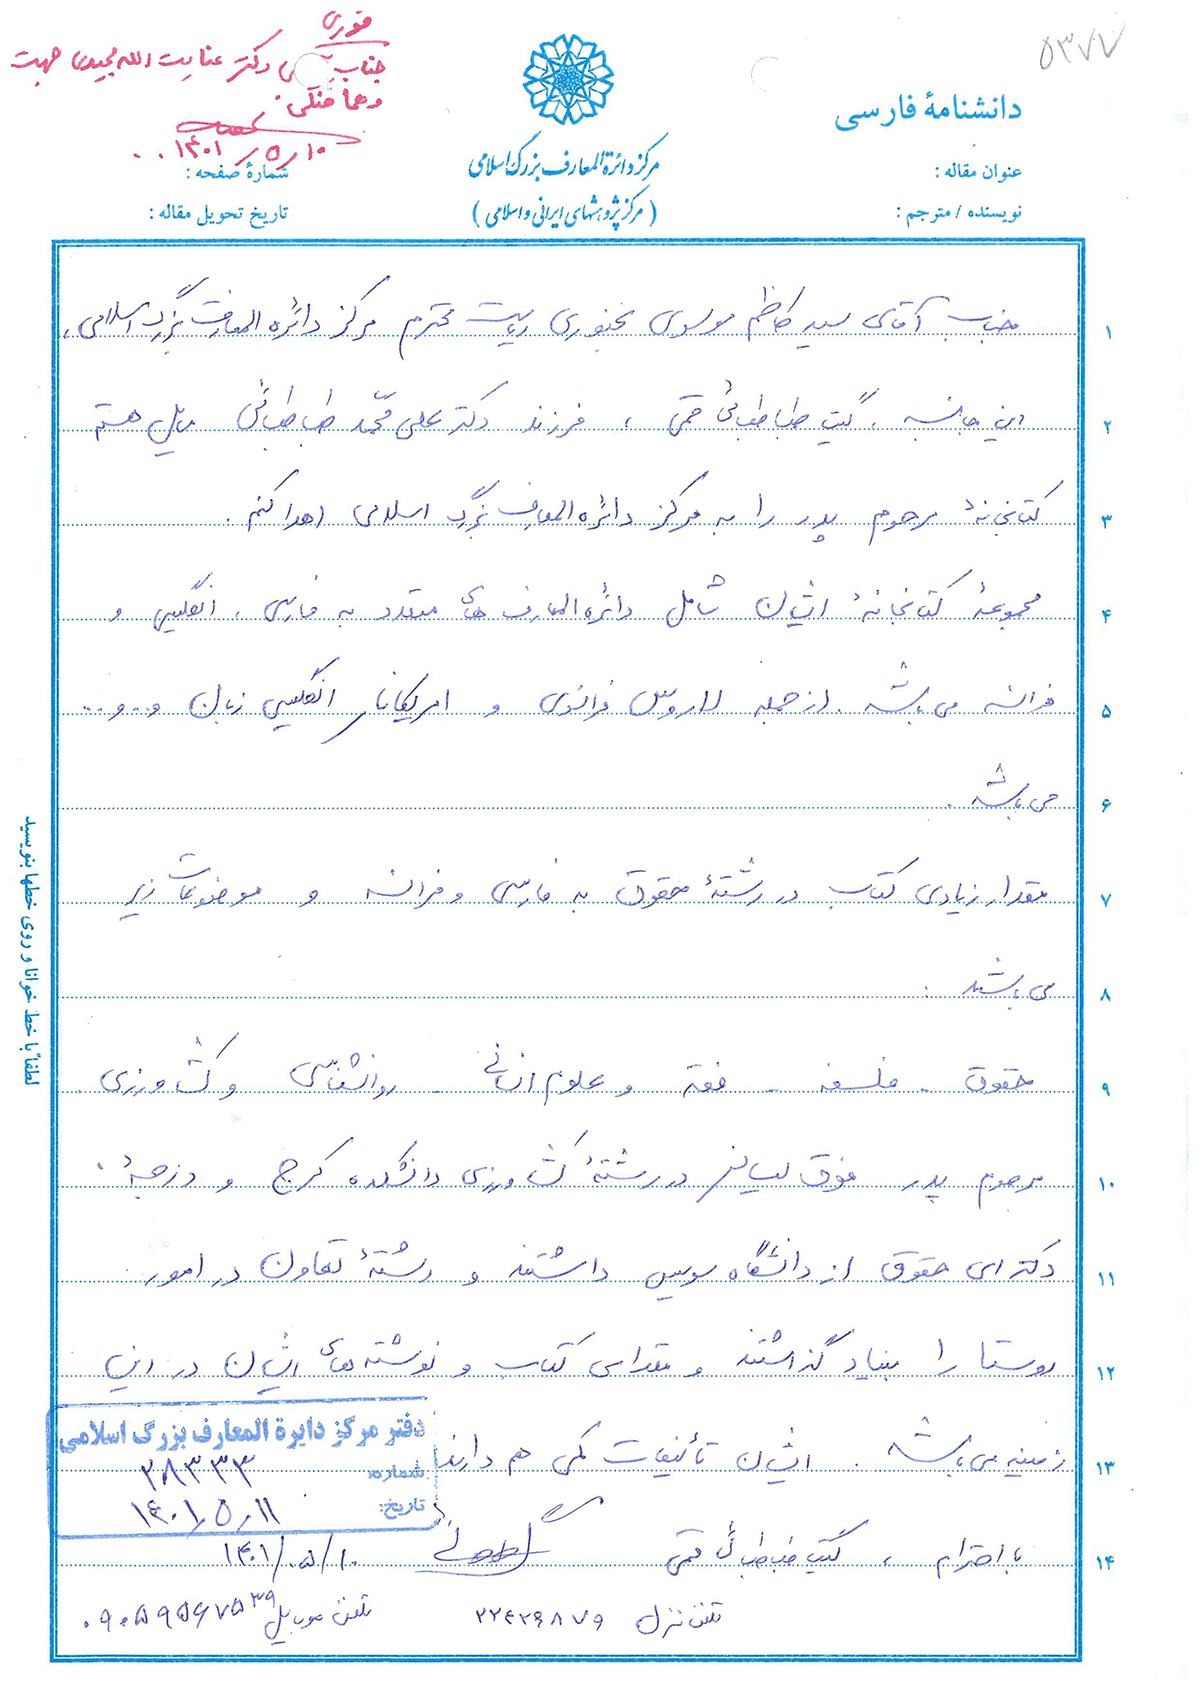 ۵۳۷۷
فوری
جناب آقای دکتر عنایت الله مجیدی جهت
هماهنگی.
۱۴۰۱/۵/۱۰
دانشنامهٔ فارسی
مرکز دائرة المعارف بزرگ اسلامی
(مرکز پژوهشهای ایرانی و اسلامی)
عنوان مقاله :
شمارهٔ صفحه :
نویسنده / مترجم :
تاریخ تحویل مقاله :
۱ جناب آقای سید کاظم موسوی بجنوردی ریاست محترم مرکز دائرة المعارف بزرگ اسلامی،
۲ این جانب ، گیتی طباطبائی قمی ، فرزند دکتر علی محمد طباطبائی مایل هستم
۳ کتابخانهٔ مرحوم پدر را به مرکز دائرة المعارف بزرگ اسلامی اهدا کنم .
۴ مجموعهٔ کتابخانهٔ ایشان شامل دائرة المعارف های متعدد به فارسی ، انگلیسی و
۵ فرانسه می باشد . از جمله لاروس فرانسوی و امریکانا انگلیسی زبان و..و..
۶ می باشد .
۷ مقدار زیادی کتاب در رشتهٔ حقوق به فارسی و فرانسه و موضوعات زیر
۸ می باشند .
۹ حقوق - فلسفه - فقه و علوم انسانی - روانشناسی و کشاورزی .
۱۰ مرحوم پدر فوق لیسانس در رشتهٔ کشاورزی دانشکده کرج و درجهٔ
۱۱ دکترای حقوق از دانشگاه سویس داشتند و رشتهٔ تعاون در امور
۱۲ روستا را بنیاد گذاشتند و تعدادی کتاب و نوشته های ایشان در این
۱۳ زمینه می باشد . ایشان تألیفات کمی هم دارند
دفتر مرکز دایرة المعارف بزرگ اسلامی
شماره: ۲۸۳۳۳
تاریخ: ۱۴۰۱٫۵٫۱۱
۱۴ با احترام ، گیتی طباطبائی قمی ۱۴۰۱/۰۵/۱۰
تلفن منزل ۲۲۴۲۶۸۷۹ تلفن موبایل ۰۹۰۵۹۵۶۷۵۳۹
لطفاً با خط خوانا و روی خطها بنویسید